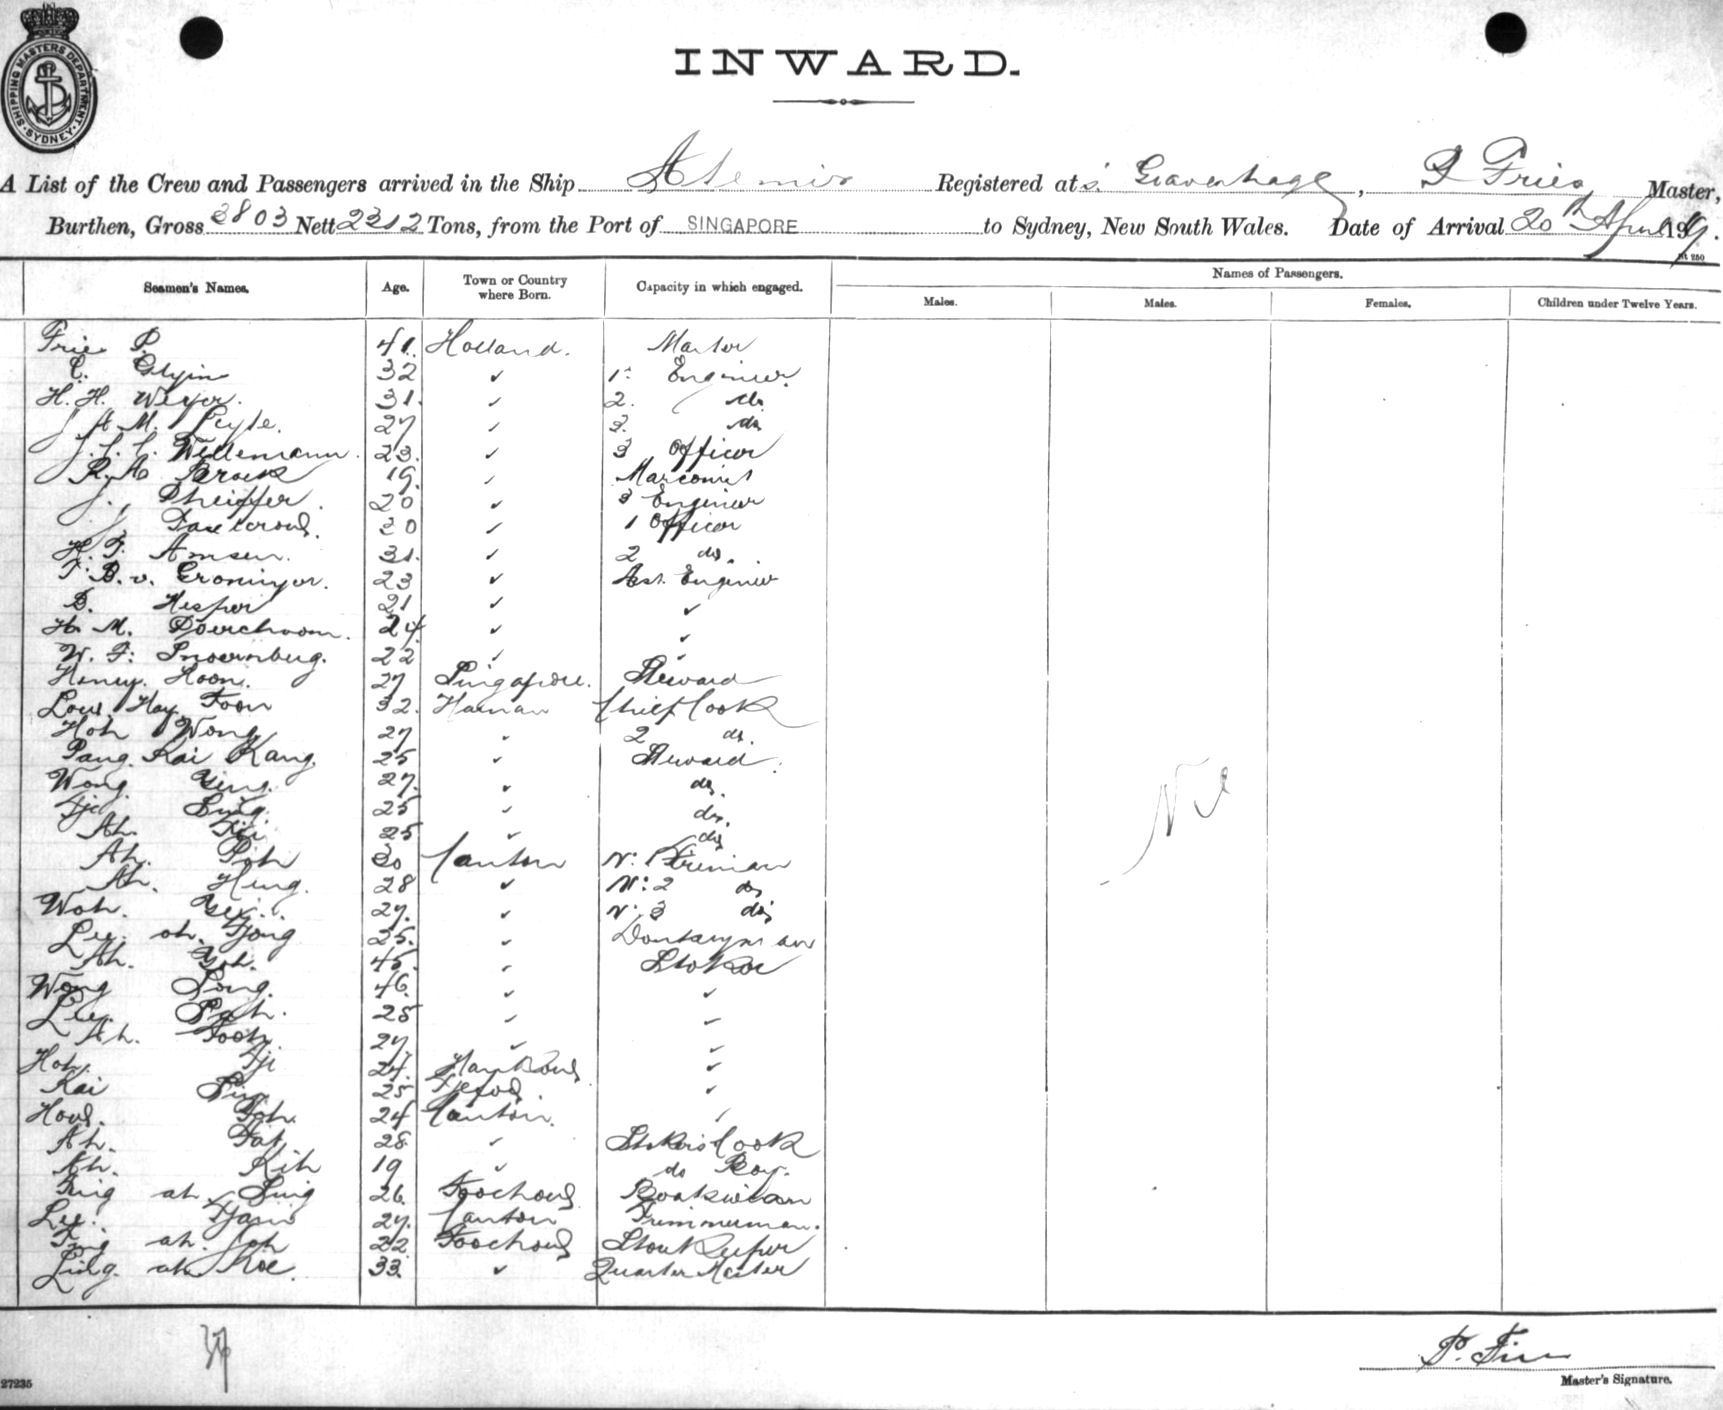 SHIPPING MASTERS DEPARTMENT. SYDNEY
INWARD.
A List of the Crew and Passengers arrived in the Ship Registered at s. Gravenhage, P Fries Master,
Burthen, Gross 3803 Nett 2312 Tons, from the Port of SINGAPORE to Sydney, New South Wales. Date of Arrival 20th April 191
St 250
Names of Passengers.
Seamen's Names. Age. Town or Country where Born. Capacity in which engaged. Males. Males. Females. Children under Twelve Years.
Fries P. 41. Holland. Master
C. 32 ✓ 1: Engineer
H. H. Weyer. 31. ✓ 2. do
J A M. 27 ✓ 3. do
Wellemann. 23. ✓ 3 Officer
R. A Broek 19. ✓ Marconist
J. Pheiffer. 20 ✓ 3 Engineer
J. 20 ✓ 1 Officer
H. F. Amsen. 31. ✓ 2 do.
B. v. Groninger. 23 ✓ Ass. Engineer
D. Hesper 21 ✓ ✓
H. M. 24 ✓ ✓
W. F. Snoernberg. 22 ✓ ✓
Henry Hoon. 27 Singapore. Steward
Low Hay Foon 32. Hainan Chief Cook
Hoh Wong 27 ✓ 2 do.
Pang Kai Kang 25 ✓ Steward.
Wong 27. ✓ do.
Tje Sing. 25 ✓ do.
Ah. 25 ✓ do
Ah. Poh 30 Canton N: 1 Fireman
Ah. Hing. 28 ✓ N: 2 do
Woh. 27. ✓ N: 3 do
Lee ah. Tjong 25. ✓ Donkeyman
Ah. Yoh. 45. ✓ Stoker
Wong Song. 46. ✓ ✓
Lee. Pah. 25 ✓ ✓
Ah. Foon. 27. ✓ ✓
Hoh. Tji 24. Hankow ✓
Kai 25 ✓
How. Foh. 24 Canton. ✓
Ah. Fat 28 ✓ Stokers Cook
Ah. Kih 19 ✓ do Boy.
Ting ah Sing 26. Foochow Boatswain
Lee. Tjan 27. Canton Trimmerman.
Ting ah. Joh 22. Foochow Storekeeper
Ling. ah Koe. 33. ✓ Quarter Master
Nil
37
P. Fries
27235
Master's Signature.